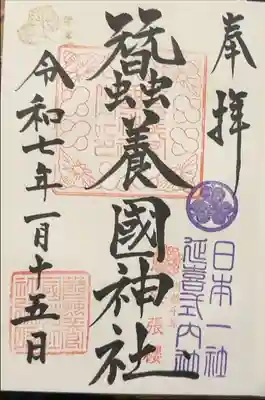 奉拝
日本一社
延喜式内社
蠶養國神社
張櫻
令和七年一月十五日